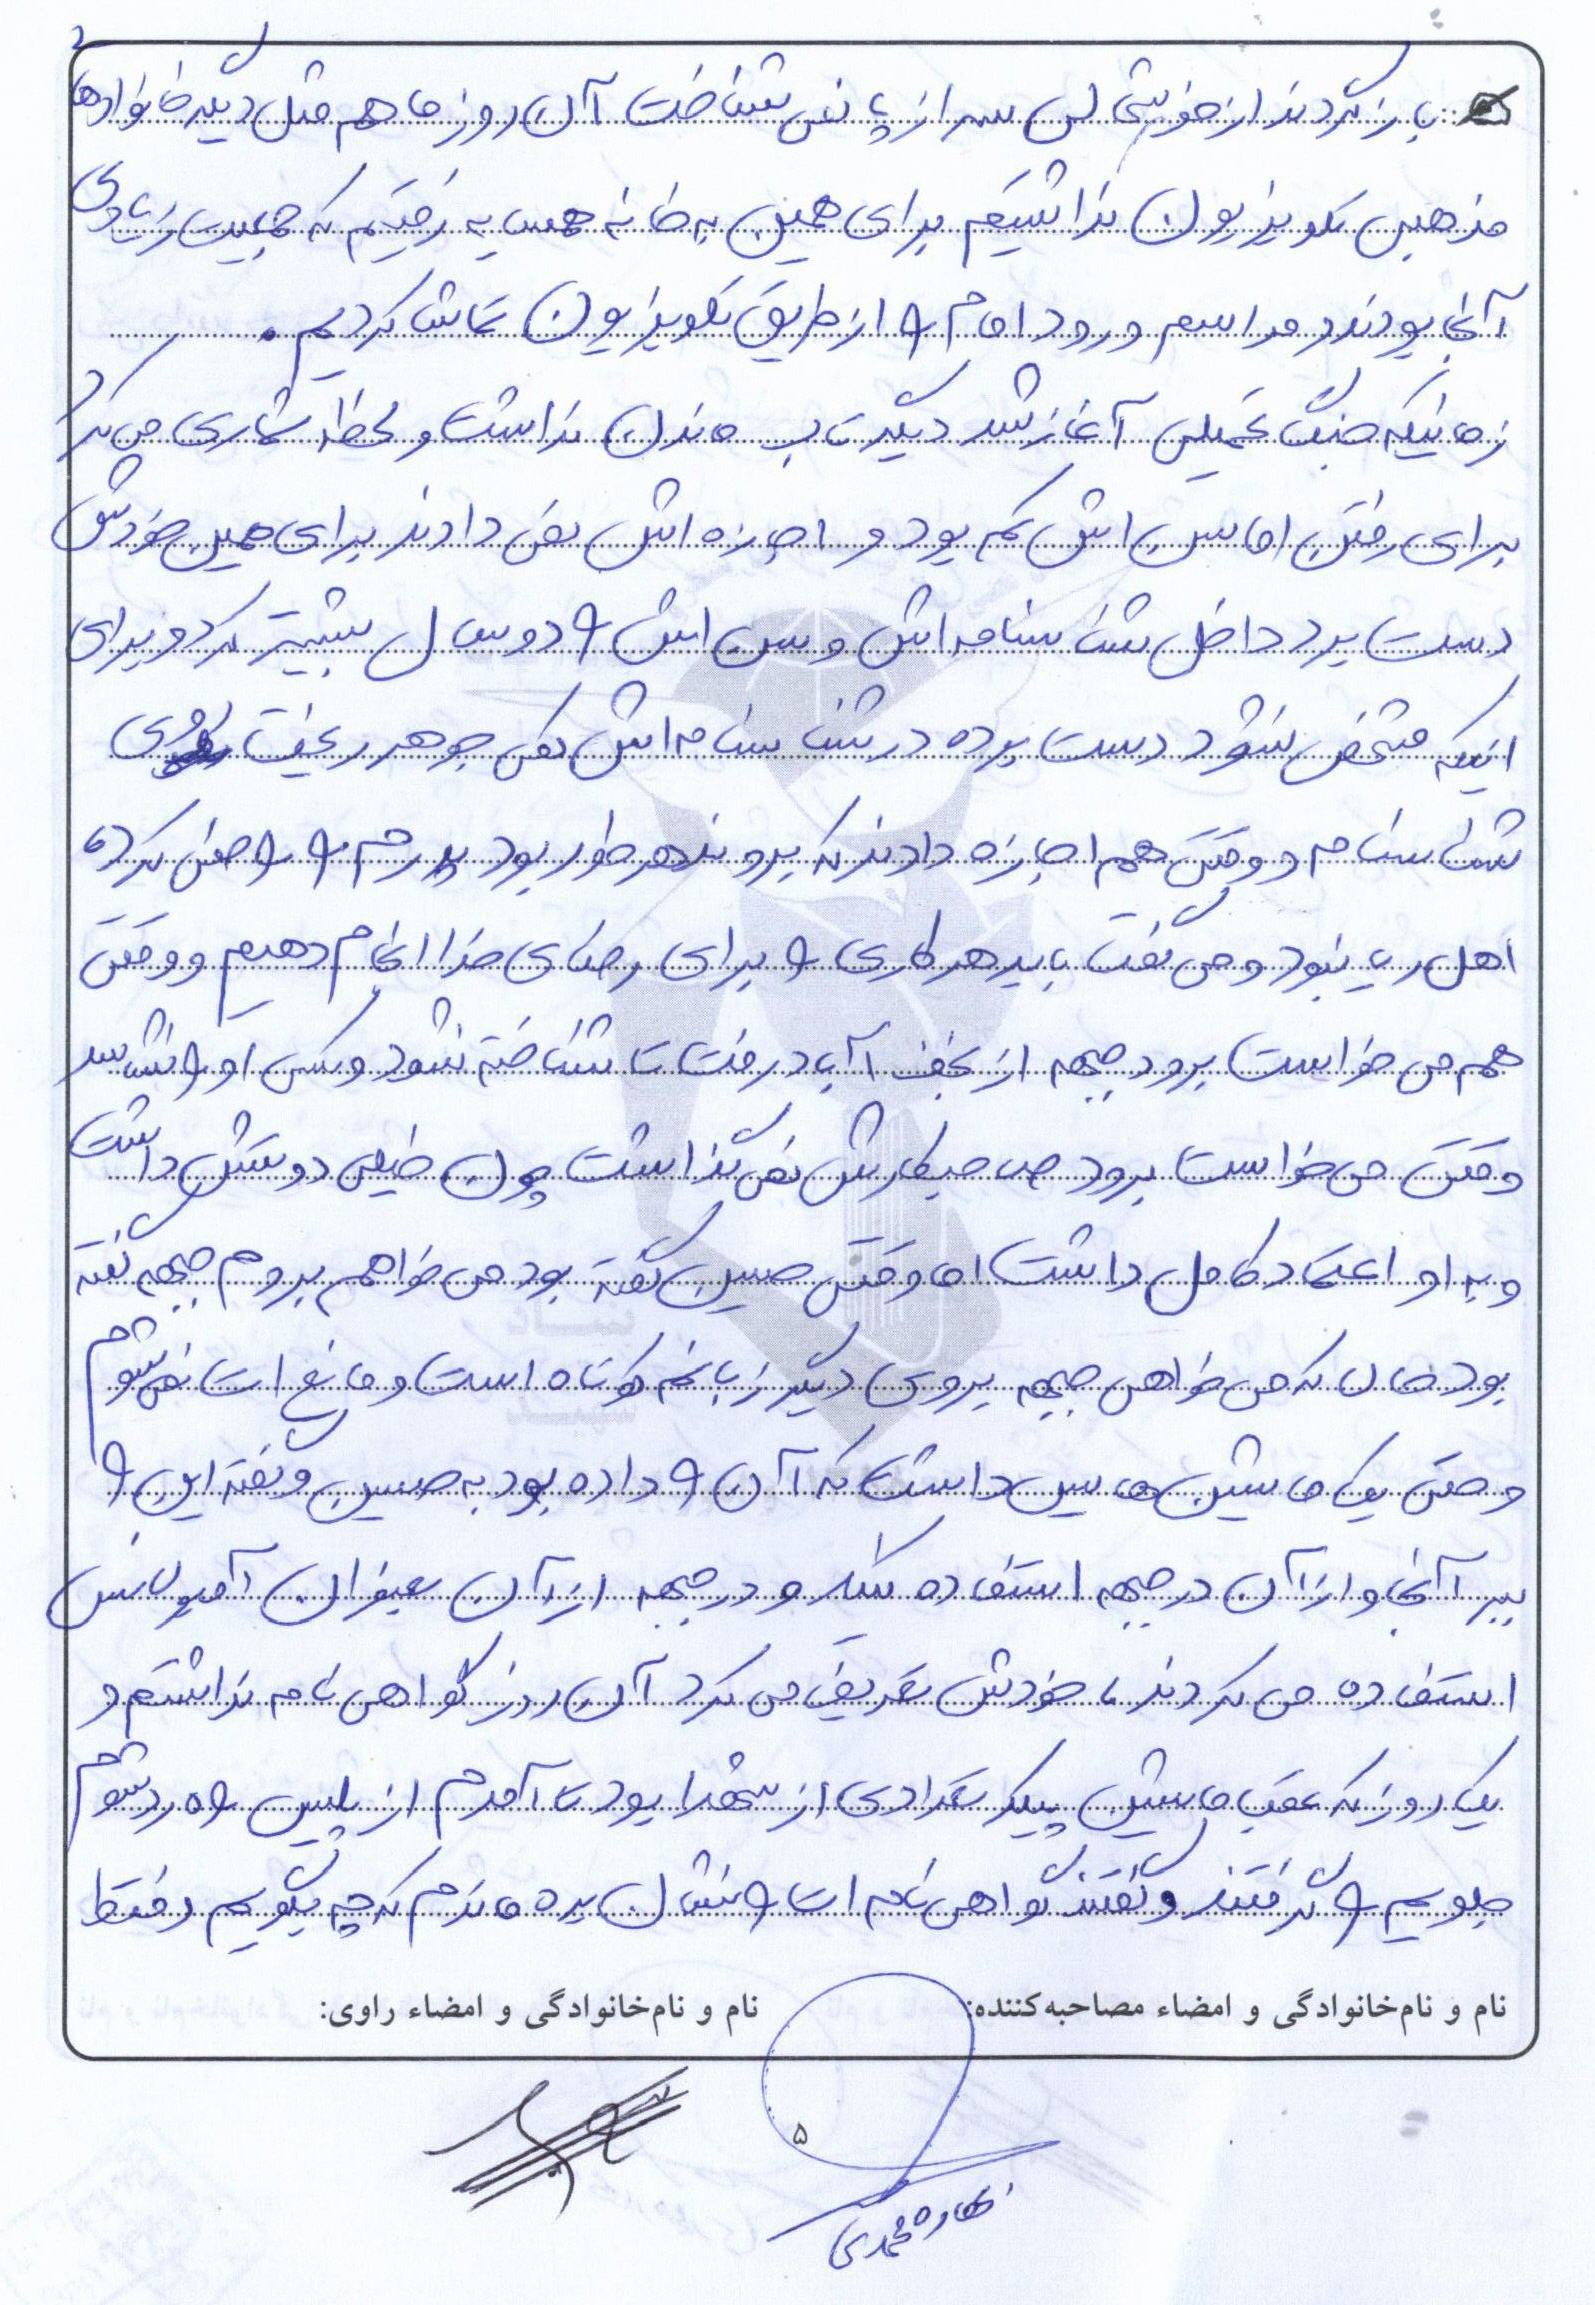 2
باز گردند از خوشحالی سر از پا نمی شناخت آن روز ما هم مثل دیگر خانوادهای
مذهبی تلویزیون نداشتیم برای همین به خانه همسایه رفتیم که جمعیت زیادی
آنجا بودند و مراسم ورود امام را از طریق تلویزیون تماشا کردیم.
زمانیکه جنگ تحمیلی آغاز شد دیگر تاب ماندن نداشت و لحظه شماری می کرد
برای رفتن اما سن اش کم بود و اجازه اش نمی دادند برای همین خودش
دست برد داخل شناسنامه اش و سن اش را دو سال بیشتر کرد و برای
اینکه مشخص نشود دست برده در شناسنامه اش کمی جوهر ریخت روی
شناسنامه و وقتی هم اجازه دادند که برود هر طور بود پدرم را راضی کرد،
اهل ریا نبود و می گفت باید هر کاری را برای رضای خدا انجام دهیم و وقتی
هم می خواست برود جبهه از نجف آباد رفت تا شناخته نشود و کسی او را نشناسد
وقتی می خواست برود صاحبکارش نمی گذاشت چون خیلی دوستش داشت
و به او اعتماد کامل داشت اما وقتی حسین گفته بود می خواهم بروم جبهه گفته
بود حالا که می خواهی جبهه بروی دیگر زبانم کوتاه است و مانع ات نمی شوم
و حتی یک ماشین داشت که آن را داده بود به حسین و گفته این را
ببر آنجا و از آن در جبهه استفاده کنید و در جبهه از آن بعنوان آمبولانس
استفاده می کردند، خودش تعریف می کرد آن روز گواهی نامه نداشتم و
یک روز که عقب ماشین پیکر تعدادی از شهدا بود تا آمدم از پلیس راه رد شوم
جلویم را گرفتند و گفتند گواهی نامه ات را نشان بده ماندم که چه بگویم و فقط
نام و نام‌خانوادگی و امضاء مصاحبه‌کننده:
نام و نام‌خانوادگی و امضاء راوی:
۵
محمدی